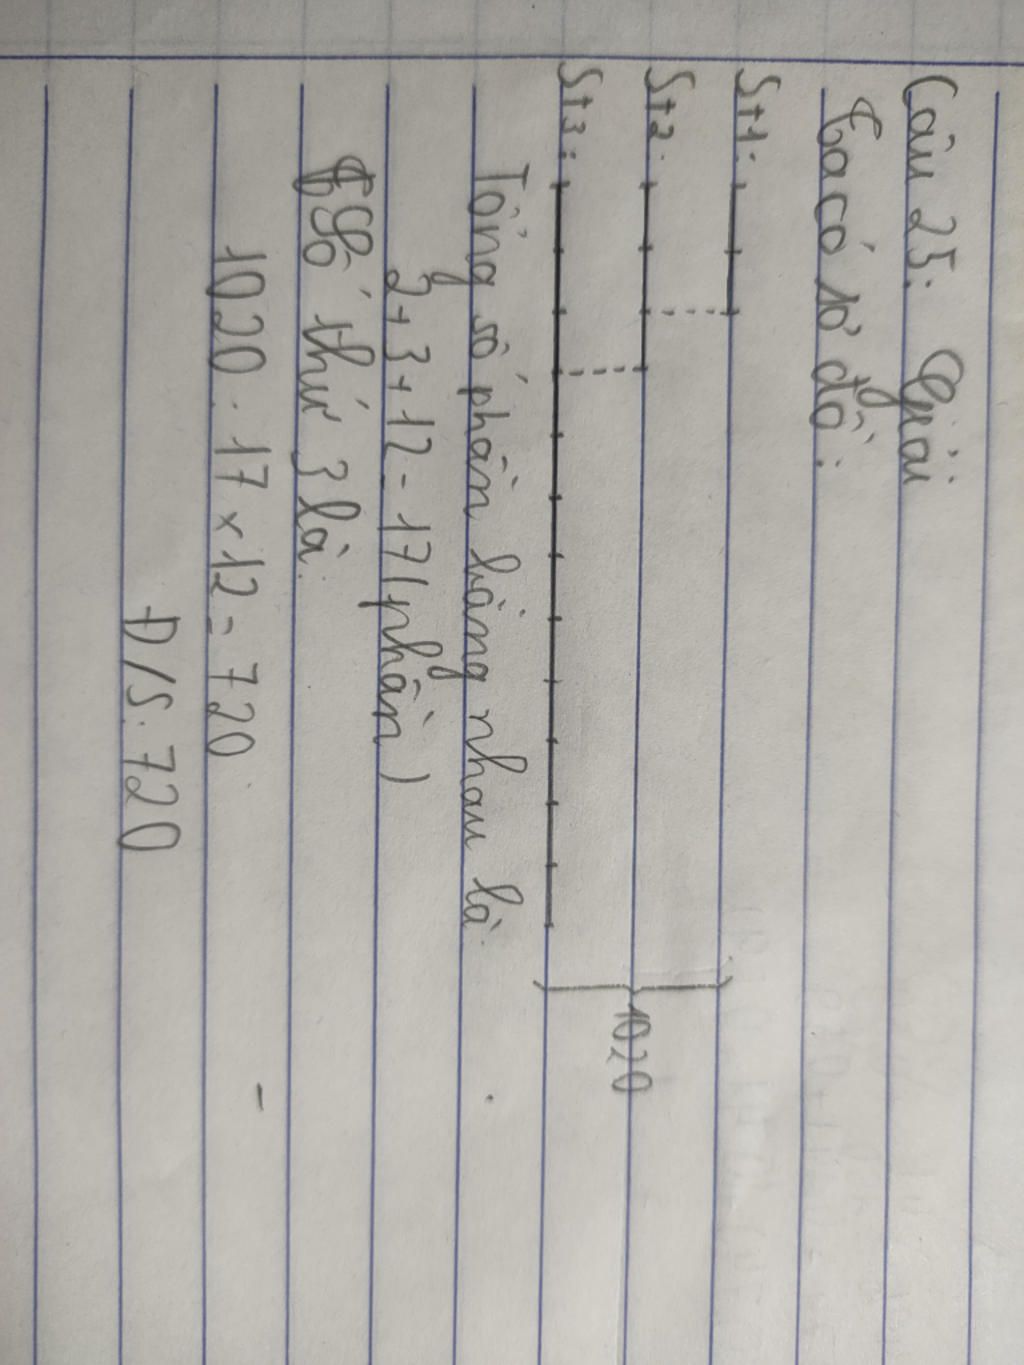 Câu 25: Giải
Ta có sơ đồ:
St1:
St2:
St3:
1020
Tổng số phần bằng nhau là:
2+3+12=17(phần)
Số thứ 3 là:
1020:17×12=720
Đ/S:720